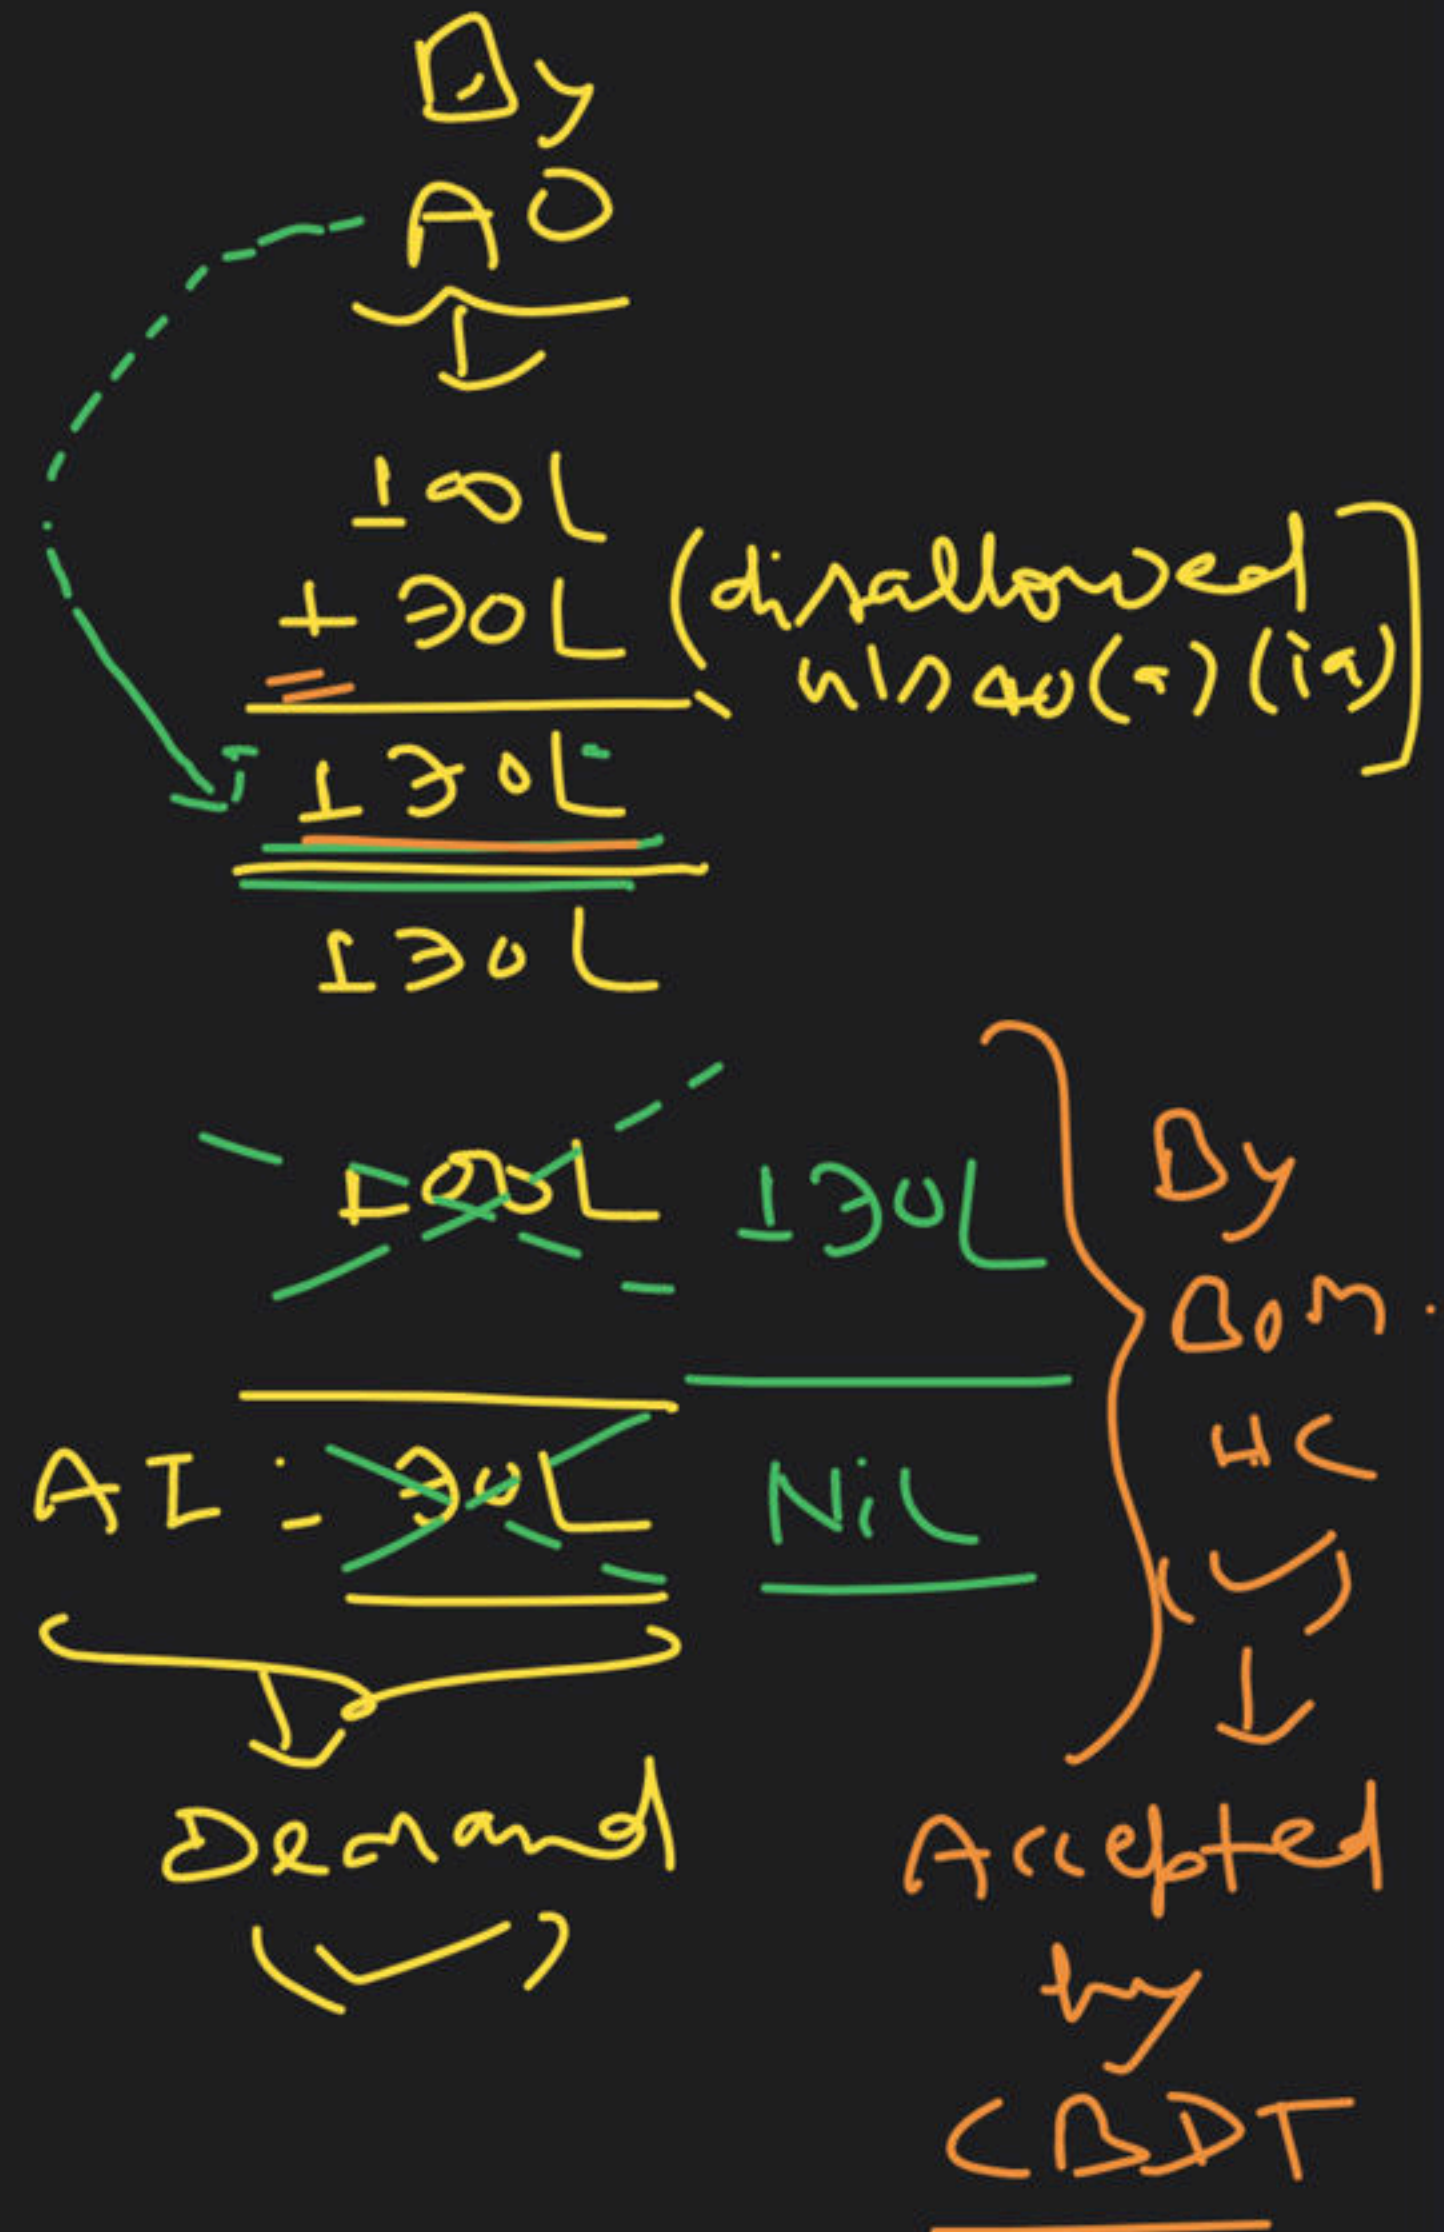 By
AO
100L
+ 30L (disallowed
u/s 40(a)(ia)]
130L
130L
100L 130L
AI :- 30L NiL
Demand
By
Bom.
HC
Accepted
by
CBDT